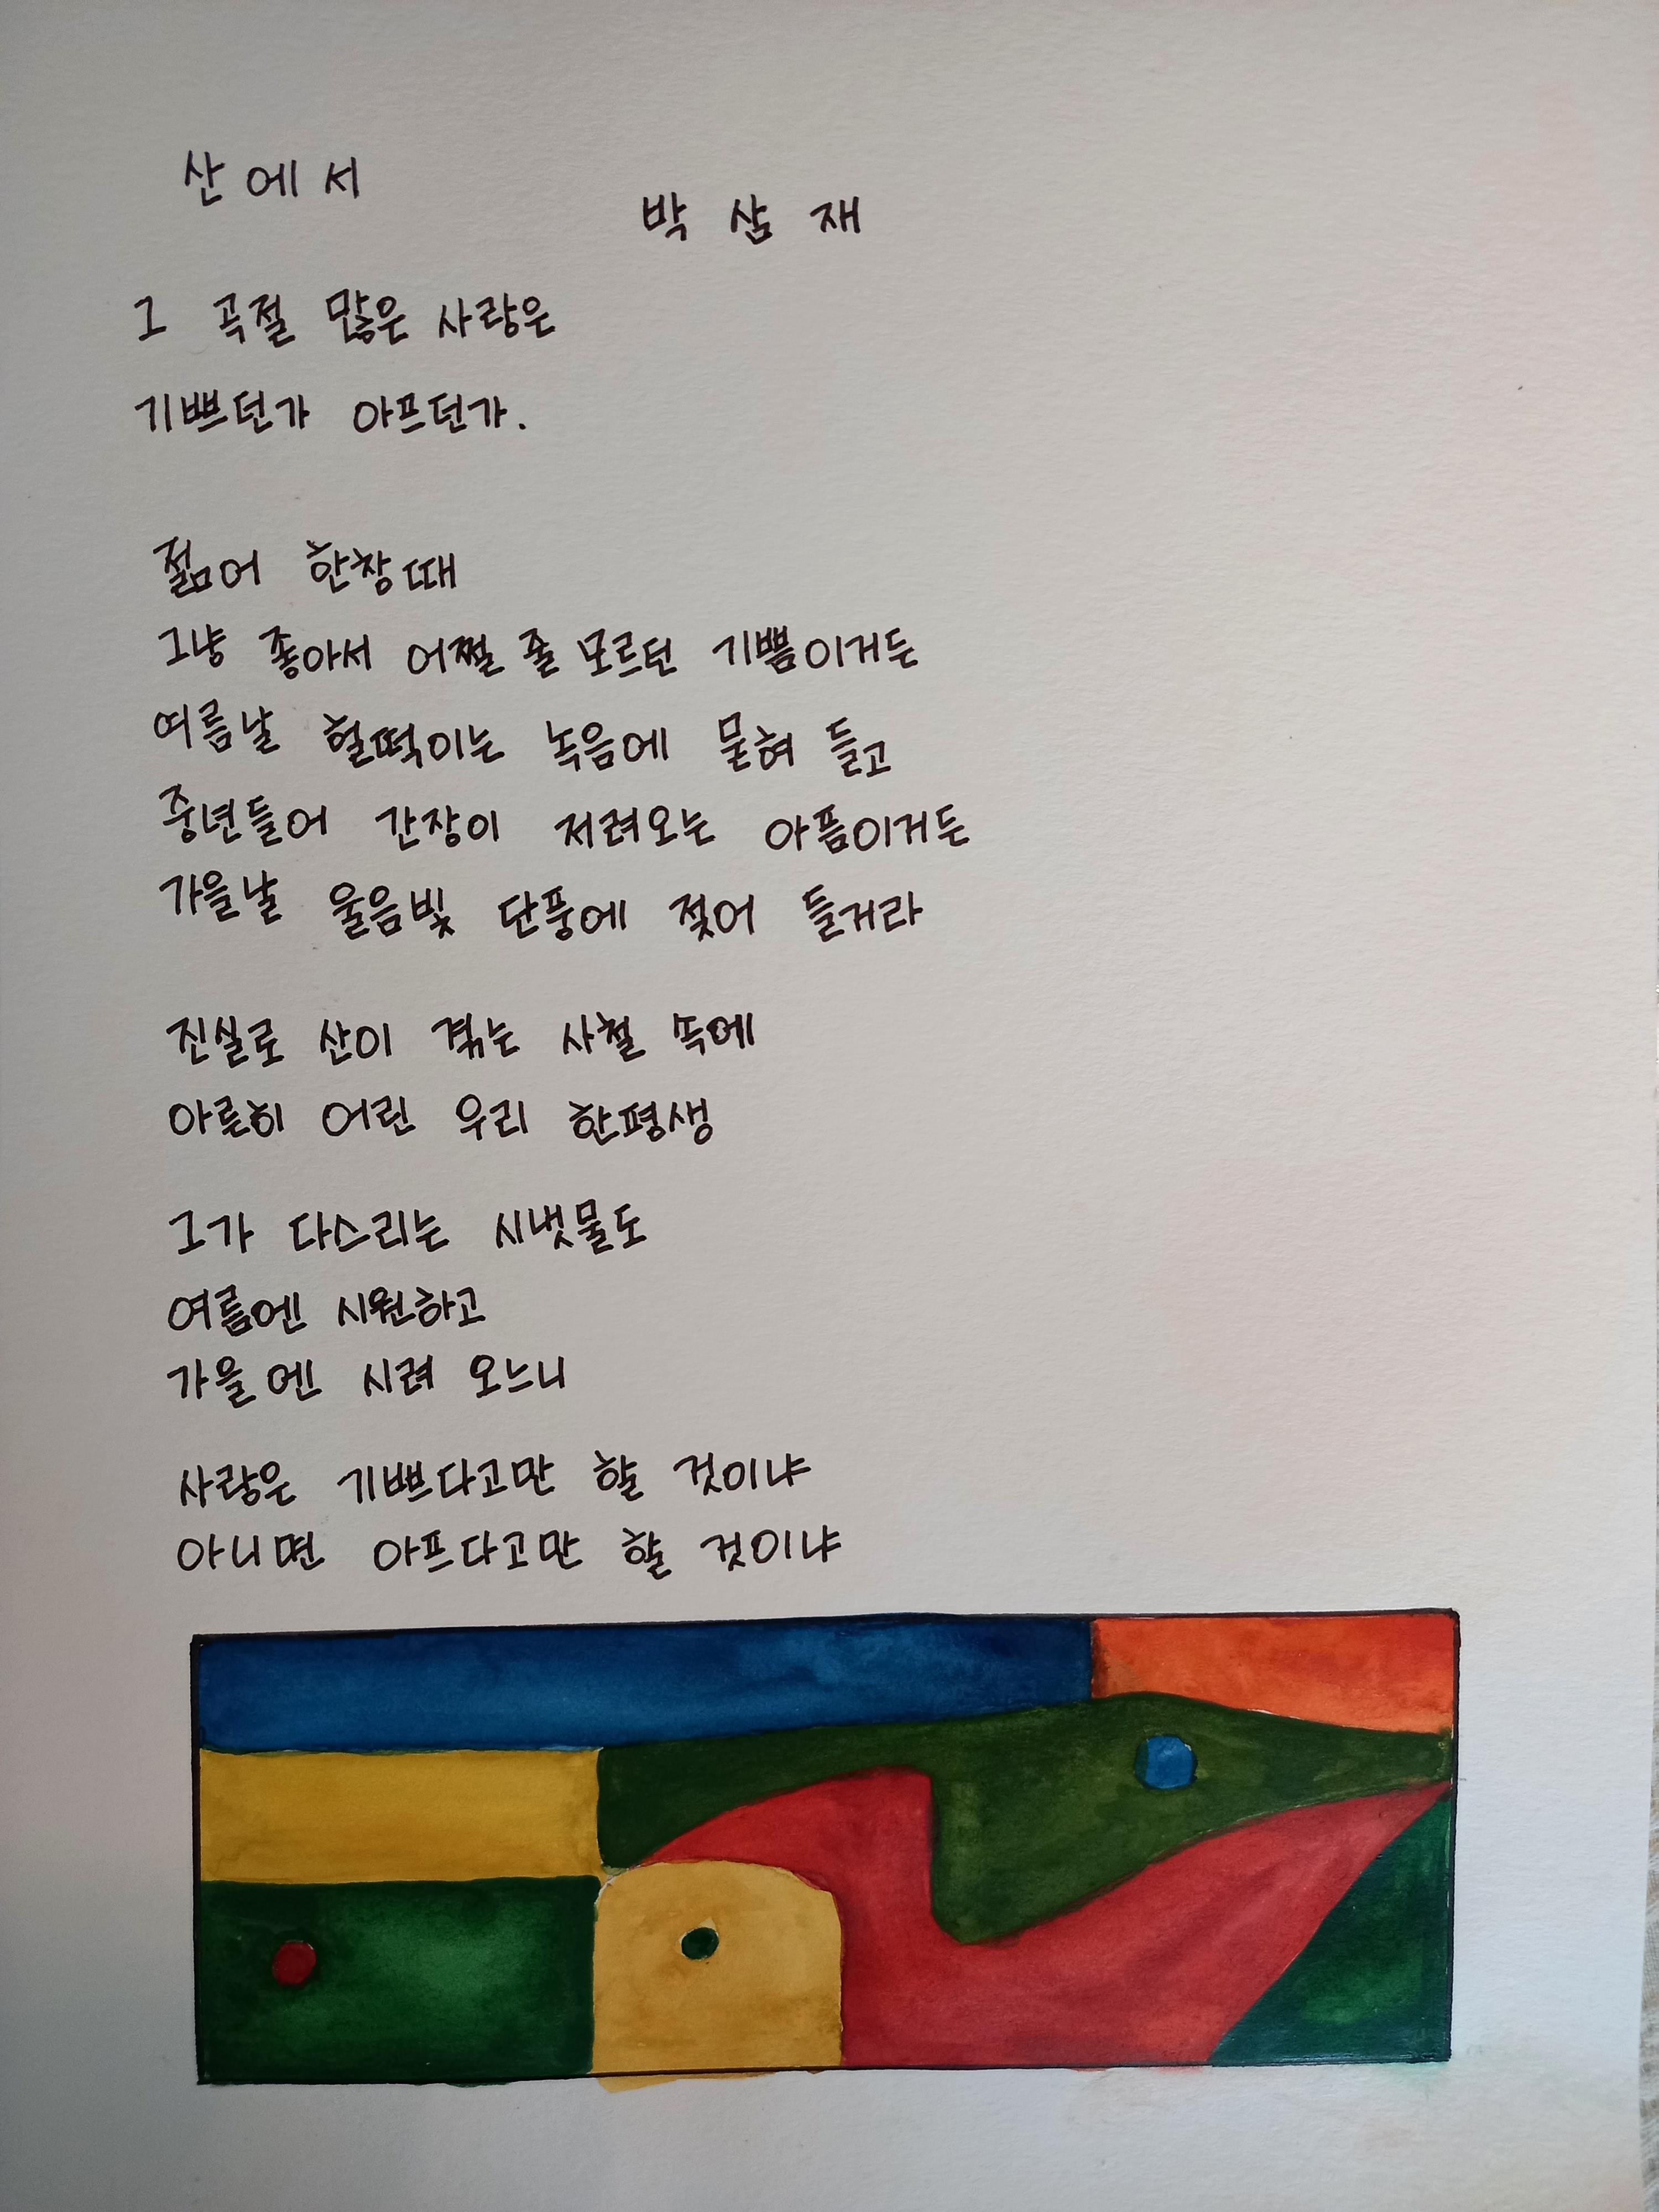 산에서
박 삼 재
그 곡절 많은 사랑은
기쁘던가 아프던가.
젊어 한창때
그냥 좋아서 어쩔 줄 모르던 기쁨이거든
여름날 헐떡이는 녹음에 묻혀 들고
중년들어 간장이 저려오는 아픔이거든
가을날 울음빛 단풍에 젖어 들거라
진실로 산이 겪는 사철 속에
아른히 어린 우리 한평생
그가 다스리는 시냇물도
여름엔 시원하고
가을엔 시려 오느니
사랑은 기쁘다고만 할 것이냐
아니면 아프다고만 할 것이냐